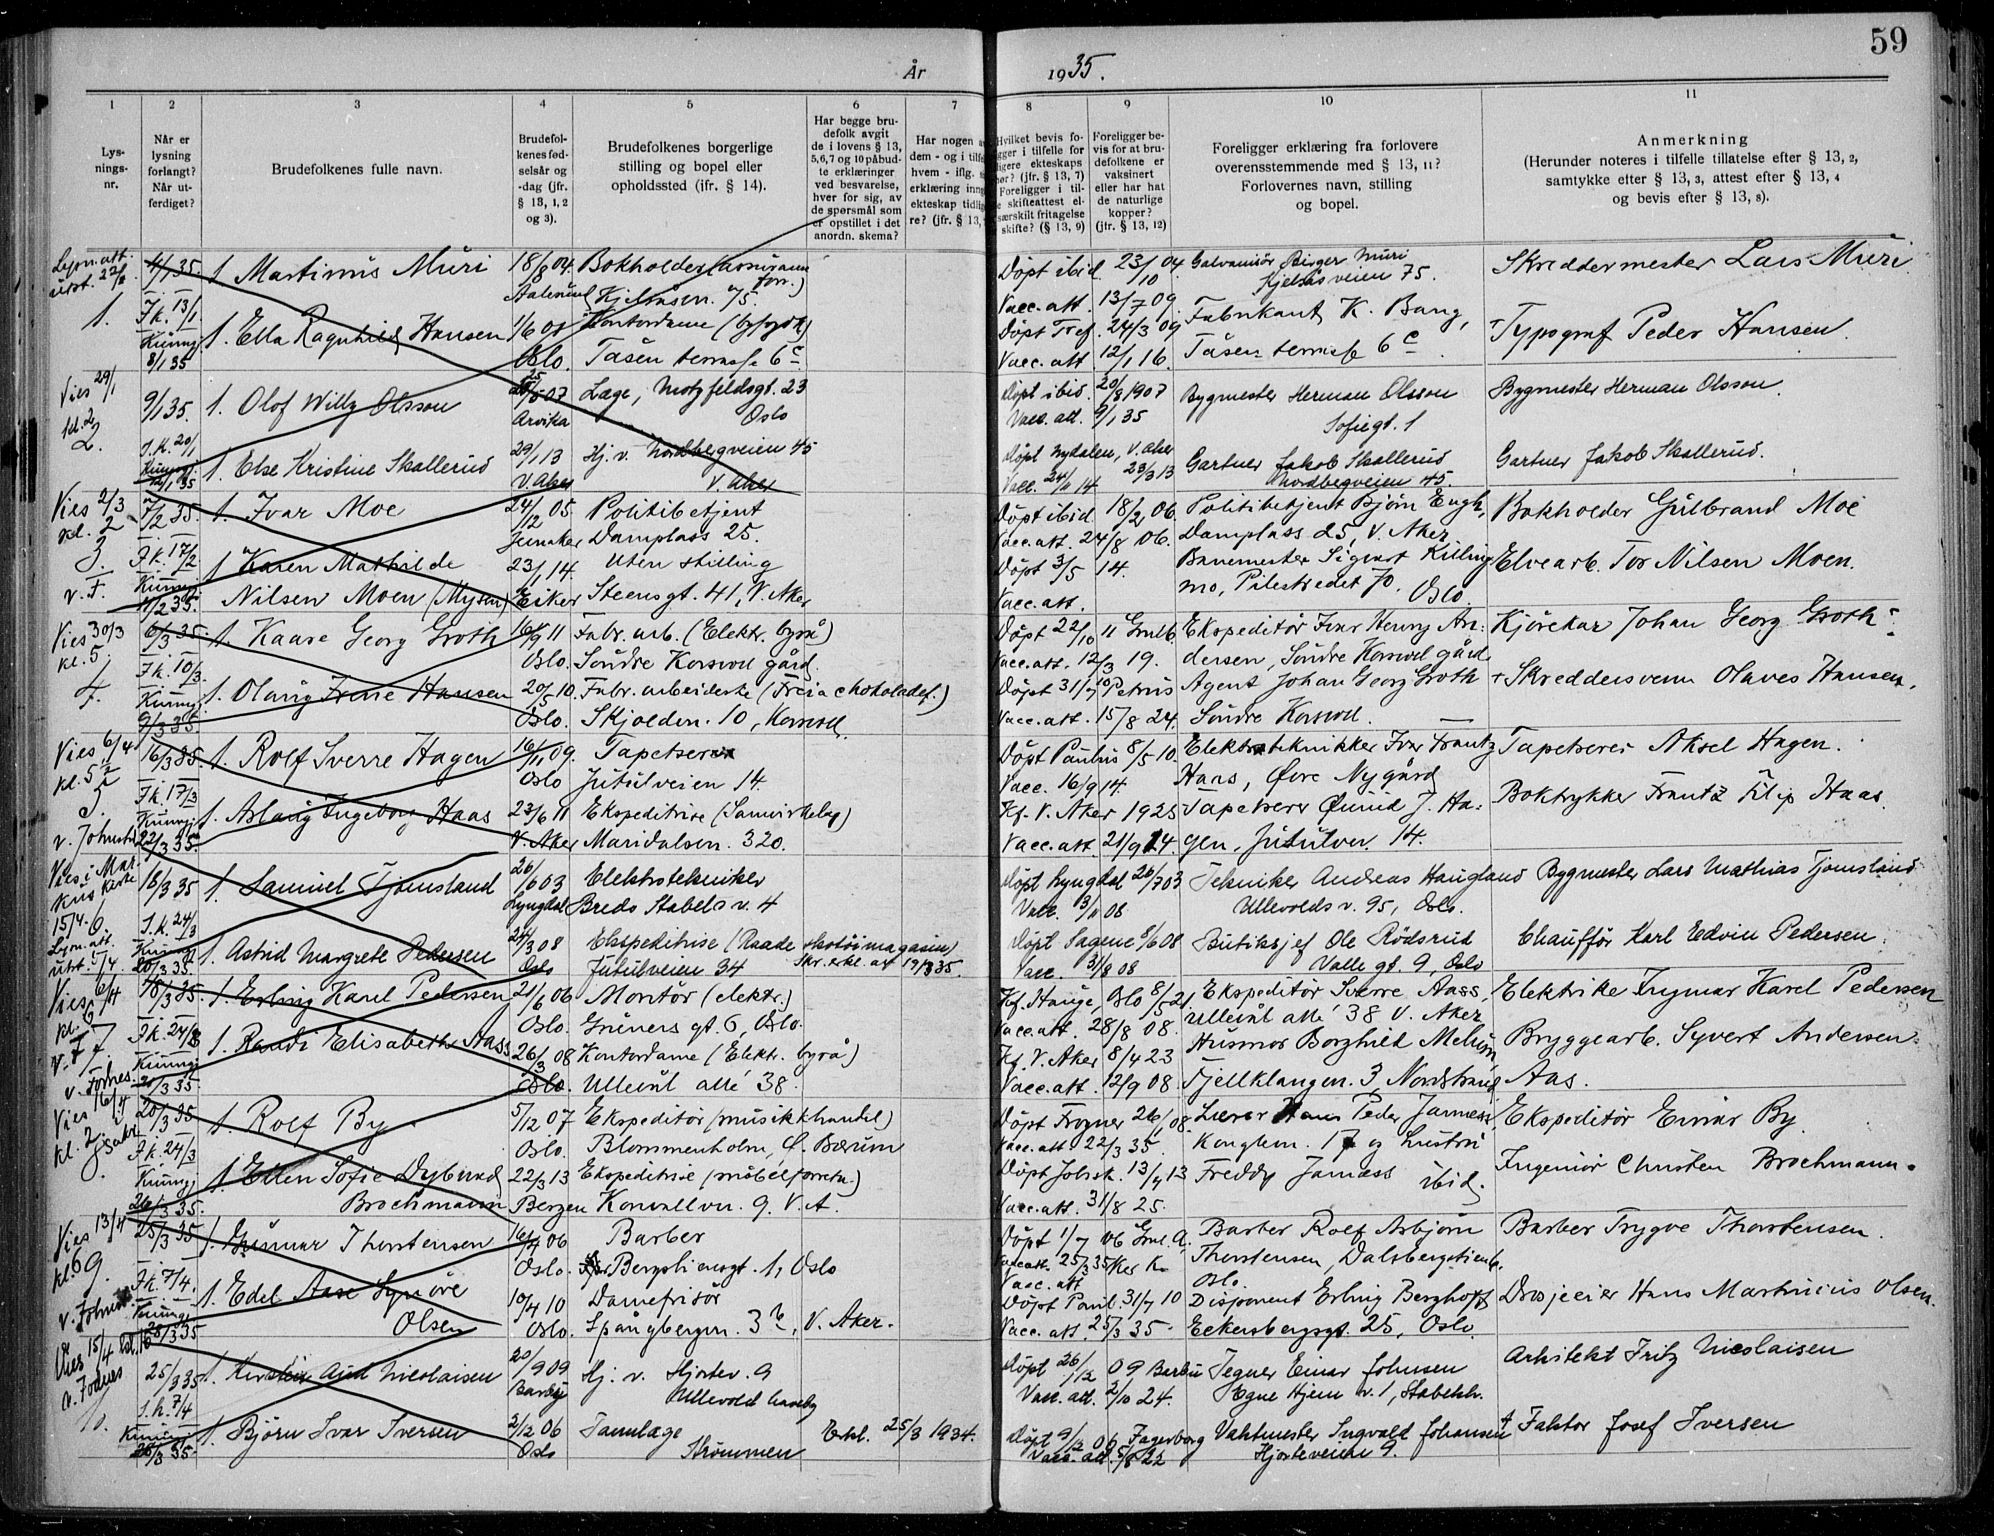 59
År 1935.
1 2 3 4 5 6 7 8 9 10 11
Lys-
nings-
nr.
Når er
lysning
forlangt?
Når ut-
ferdiget?
Brudefolkenes fulle navn.
Brudefol-
kenes fød-
selsår og
-dag (jfr.
§ 13, 1, 2
og 3).
Brudefolkenes borgerlige
stilling og bopel eller
opholdssted (jfr. § 14).
Har begge bru-
defolk avgit
de i lovens § 13,
5,6,7 og 10 påbud-
te erklæringer
ved besvarelse,
hver for sig, av
de spørsmål som
er opstillet i det
anordn. skema?
Har nogen
dem - og i tilf
hvem - iflg.
erklæring inng
ekteskap tidlig
re? (jfr. § 13,
Hvilket bevis fo-
gger i tilfelle for
ligere ekteskaps
hør? (jfr. § 13, 7)
Foreligger i til-
e skifteattest el-
særskilt fritagelse
skifte? (§ 13, 9)
Foreligger be-
vis for at bru-
defolkene er
vaksinert
eller har hat
de naturlige
kopper?
(jfr. § 13, 12)
Foreligger erklæring fra forlovere
overensstemmende med § 13, 11?
Forlovernes navn, stilling
og bopel.
Anmerkning
(Herunder noteres i tilfelle tillatelse efter § 13, 2,
samtykke efter § 13, 3, attest efter § 13, 4
og bevis efter § 13, 8).
Lysn.att.
utst. 22/2
1.
4/1 35. 1. Martinus Muri 18/8 04. Bokholder
Aalesund Hjelmsvn. 75.
Døpt ibid 23/10 04. Birger Muri
Kjelsåsveien 75.
Skreddermester Lars Muri
Jk. 13/1 Vacc. att. 13/7 09.
1. Ella Ragnhild Hansen 1/6 08 Kontordame
Døpt Tref. 24/3 09 Fabrikant K. Bang,
Typograf Peder Hansen.
8/1 35 Oslo. Tåsen terrasse 6c
Vacc. att 12/1 16. Tåsen terrasse 6c.
Vies 29/1
kl. 2
2.
9/1 35. 1. Olof Willy Olsson 25/5 07 Læge, Motzfeldsgt. 23
Arvika Oslo
Døpt ibid. 20/8 1907 Bygmester Herman Olsson
Vacc. att. 9/1 35 Sofiegt. 1
Bygmester Herman Olsson.
J.k. 20/1
1. Else Kristine Skallerud 29/1 13 Hj. v. Nordbergveien 45
V. Aker V. Aker
Døpt Nydalen, V. Aker 23/3 13
Vacc. 24/11 14
Gartner Jakob Skallerud
Nordbergveien 45.
Gartner Jakob Skallerud.
Vies 2/3
kl. 2
3.
v. F.
7/2 35. 1. Ivar Moe 24/12 05 Politibetjent
Damplass 25.
Døpt ibid 18/2 06. Politibetjent Bjørn Engh,
Vacc. att. 24/8 06. Damplass 25, V. Aker
Bokholder Gulbrand Moe
Jk. 17/2
1. Karen Mathilde 23/1 14. Uten stilling
11/2 35. Nilsen Moen (Mysen) Eiker Steensgt. 41, V. Aker
Døpt 3/5 14. Banemester Sigvart Killing-
mo, Pilestredet 70. Oslo
Vacc. att.
Elvearb. Tor Nilsen Moen.
Vies 30/3
kl. 5
4.
6/3 35. 1. Kaare Georg Groth 16/9 11 Fabr. arb. (Elektr. byrå)
Oslo. Søndre Korsvoll gård.
Døpt 22/10 11 Ekspeditør Ivar Henry An-
Vacc. att. 12/3 19. dersen, Søndre Korsvoll gård
Kjørekar Johan Georg Groth
Jk. 10/3
1. Olaug Irene Hansen 20/5 10. Fabr. arbeiderske (Freia chokoladef.)
9/3 35. Oslo. Skjolden. 10, Korsvoll.
Døpt 31/7 10 Petrus Agent Johan Georg Groth
Vacc. att. 15/8 24. Søndre Korsvoll.
+ Skreddersvenn Olaves Hansen.
Vies 6/4
kl. 5 1/2
5.
16/3 35. 1. Rolf Sverre Hagen 16/11 09. Tapetserer
Oslo Jutulveien 14.
Døpt Paulus 8/5 10. Elektroteknikker Ivar Frantz
Vacc. 16/9 14. Haas, Øvre Nygård
Tapetserer Aksel Hagen.
Jk. 17/3
1. Aslaug Ingeborg Haas 23/6 11 Ekspeditrise (Samvirkelag)
22/3 35. V. Aker Maridalsvn. 320.
Kf. V. Aker 1925 Tapetserer Øivind J. Ha-
Vacc. att. 21/9 14. gen, Jutulvn. 14.
Boktrykker Frantz Filip Haas.
Vies i Mar-
kus kirke
15/4.
6.
Lysn. att.
utst. 5/4.
18/3 35 1. Samuel Tjomsland 26/6 03 Elektrotekniker
Lyngdal Breds Stabels v. 4
Døpt Lyngdal 26/7 03 Tekniker Andreas Haugland
Vacc. 3/11 08 Ullevolds v. 95, Oslo.
Bygmester Lars Mathias Tjomsland
J.k. 24/3
1. Astrid Margrete Pedersen 24/3 08 Ekspeditrise (Raade skotøimagasin)
20/3 35. Oslo Jutulveien 34 Skr. erkl. av 19/3 35.
Døpt Sagene 5/6 08 Butiksjef Ole Rødsrud
Vacc. 31/8 08 Valle gt. 9, Oslo
Chauffør Karl Edvin Pedersen.
Vies 6/4
kl. 6
7.
18/3 35. 1. Erling Karel Pedersen 21/6 06 Montør (elektr.)
Oslo. Gruners gt. 6, Oslo.
Kf. Hauge, Oslo 8/5 21 Ekspeditør Sverre Aass,
Vacc. att. 28/8 08. Ullevål allé 38 V. Aker
Elektrike Ingmar Karel Pedersen
Jk. 24/3
1. Randi Elisabeth Aass 26/3 08 Kontordame (Elektr. byrå)
Oslo. Ullevål allé 38.
Kf. V. Aker 8/4 23 Husmor Borghild Melum
Vacc. att. 12/9 08. Fjellklangen. 3, Nordstrand
Bryggearb. Syvert Andersen
Aas.
Vies 16/4
kl. 2
20/3 35 1. Rolf By 5/12 07 Ekspeditør (musikkhandel)
Oslo. Blommenholm, Ø. Bærum
Døpt Frogner 26/1 08. Lærer Hans Peder Jamessi,
Vacc. att 22/3 35. Konglevn. 17 og hustru
Ekspeditør Einar By.
Jk. 24/3
1. Ellen Sofie Dybwad 22/3 13 Ekspeditrise (møbelforretn.)
26/3 35. Brochmann Bergen Konvallvn. 9. V. A.
Døpt Johsk. 13/4 13 Freddy ibid.
Vacc. att. 31/8 25.
Ingeniør Christen Brochmann.
Vies 13/4
kl. 6
9.
25/3 35 1. Gunnar Thorstensen 16/4 06 Barber
Oslo. Bergsliensgt. 1, Oslo
Døpt 1/7 06 Barber Rolf Asbjørn
Vacc. att. 25/3 35 Thorstensen, Dalsbergstien 6.
Oslo.
Barber Trygve Thorstensen.
Jk. 7/4.
1. Edel Aase Synøve 10/4 10 Damefrisør
28/3 35 Olsen Oslo. Spångbergvn. 3b, V. Aker.
Døpt Paul. 31/7 10 Disponent Erling Berghoff
Vacc. att. 25/3 35. Eckersbergsgt. 25, Oslo.
Drosjeeier Hans Martinius Olsen.
Vies 15/4
10.
25/3 35 1. Kirsten Aud Nicolaisen 20/9 09 Hj. v. Hjortev. 9
Barbu Ullevold haveby
Døpt 26/12 09 Barbu Tegner Einar Johnsen
Vacc. att. 2/10 24. Egne Hjem v. 1, Stabekk.
Arkitekt Fritz Nicolaisen
J.k. 7/4
1. Bjørn Ivar Iversen 2/12 06 Tannlæge
28/3 35. Oslo Strømmen
Erkl. 25/3 1934.
Døpt Fagerborg Vaktmester Ingvald Johansen
Vacc. att. 5/8 22 Hjorteveien 9.
+ Faktor Josef Iversen